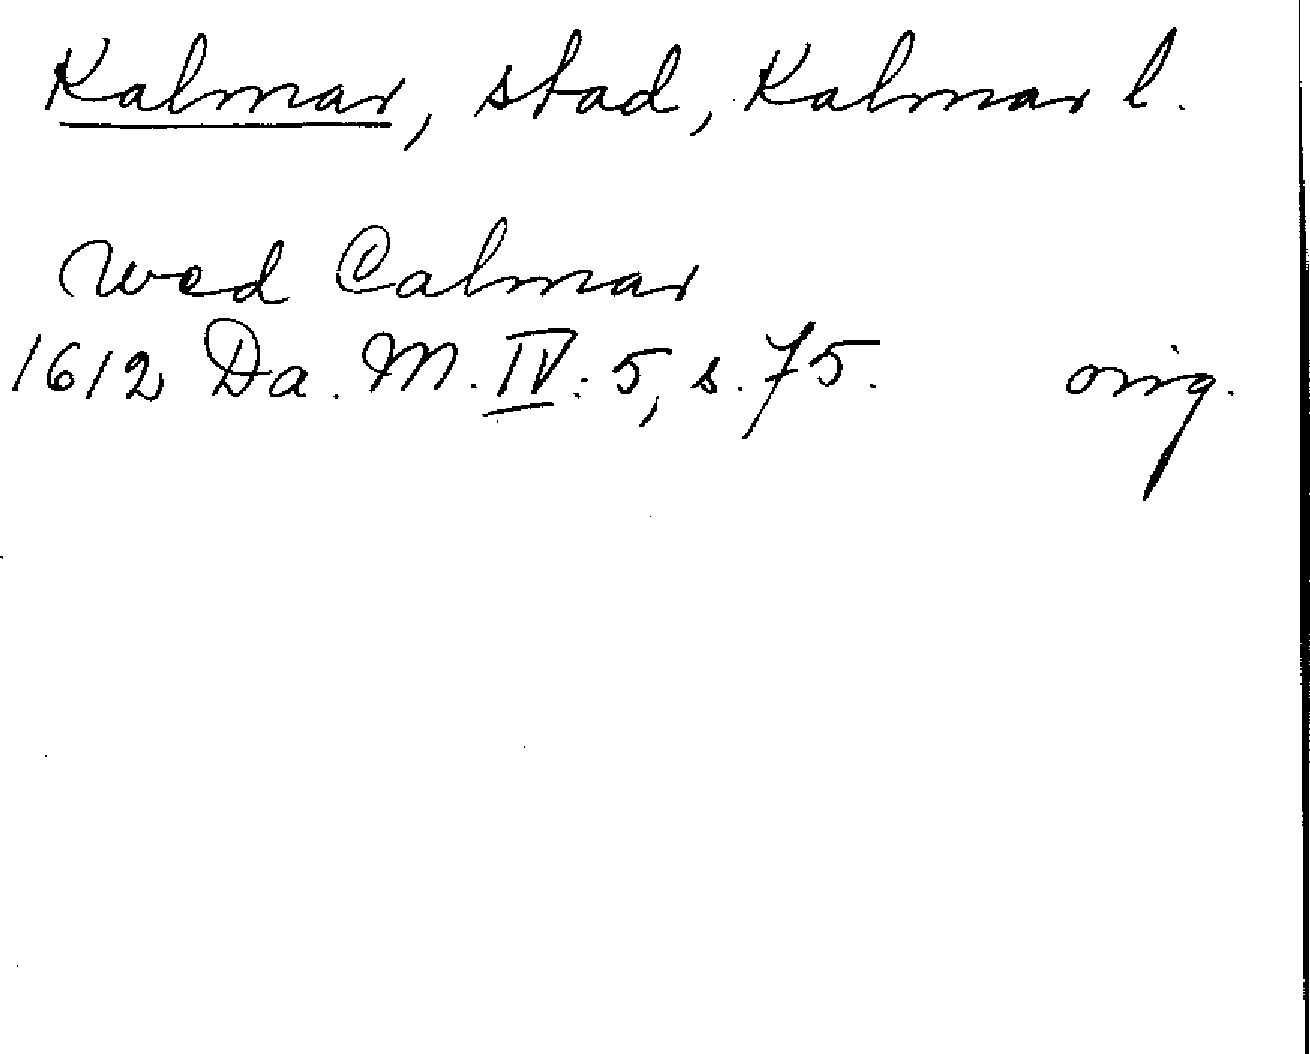 Kalmar, stad, Kalmar l.
wed Calmar
1612 Da. M. IV: 5, s. 75. orig.